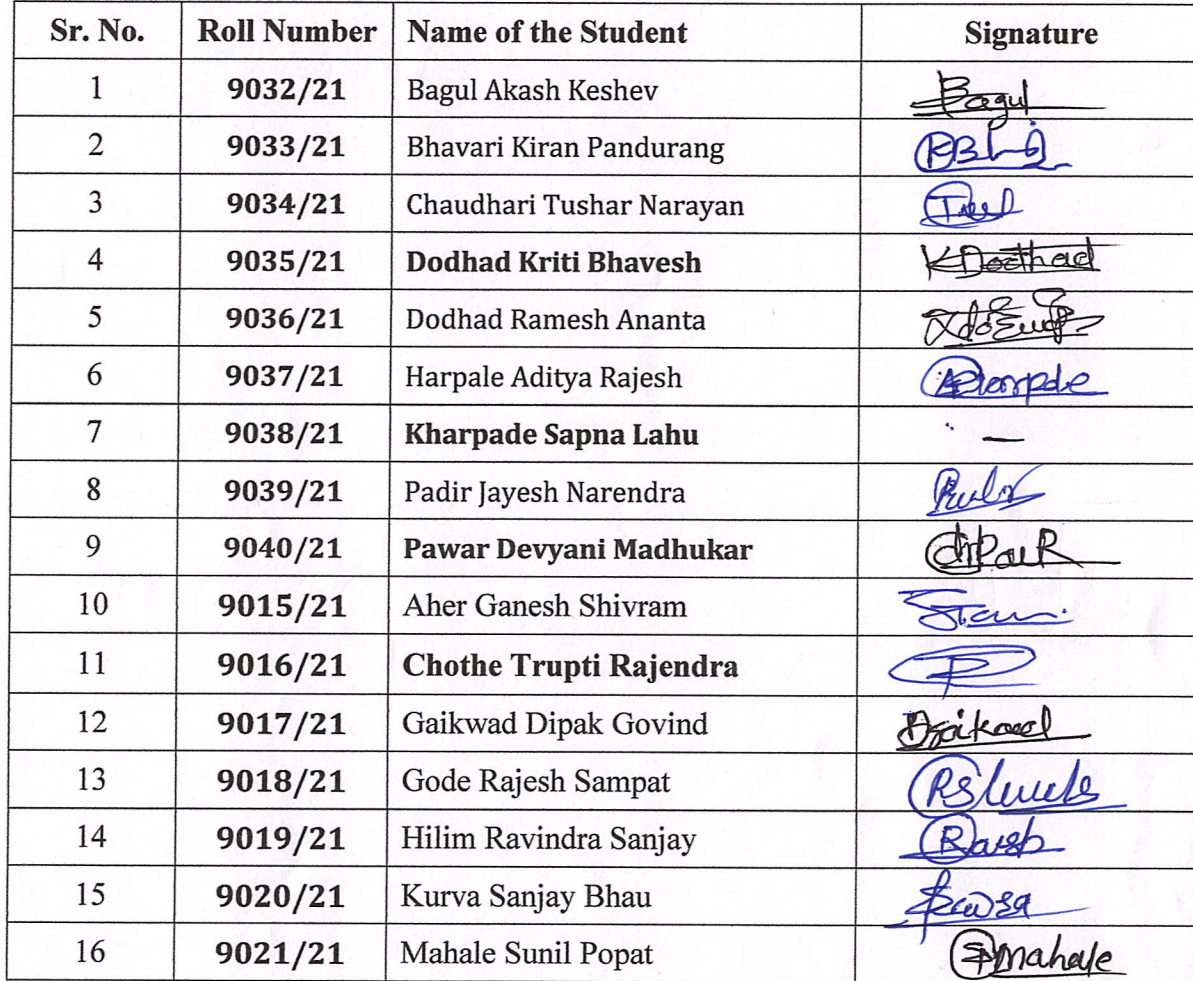 Sr. No. Roll Number Name of the Student Signature
1 9032/21 Bagul Akash Keshev Bagul
2 9033/21 Bhavari Kiran Pandurang
3 9034/21 Chaudhari Tushar Narayan
4 9035/21 Dodhad Kriti Bhavesh KDodhad
5 9036/21 Dodhad Ramesh Ananta
6 9037/21 Harpale Aditya Rajesh
7 9038/21 Kharpade Sapna Lahu —
8 9039/21 Padir Jayesh Narendra
9 9040/21 Pawar Devyani Madhukar
10 9015/21 Aher Ganesh Shivram
11 9016/21 Chothe Trupti Rajendra
12 9017/21 Gaikwad Dipak Govind
13 9018/21 Gode Rajesh Sampat
14 9019/21 Hilim Ravindra Sanjay
15 9020/21 Kurva Sanjay Bhau
16 9021/21 Mahale Sunil Popat SMahale